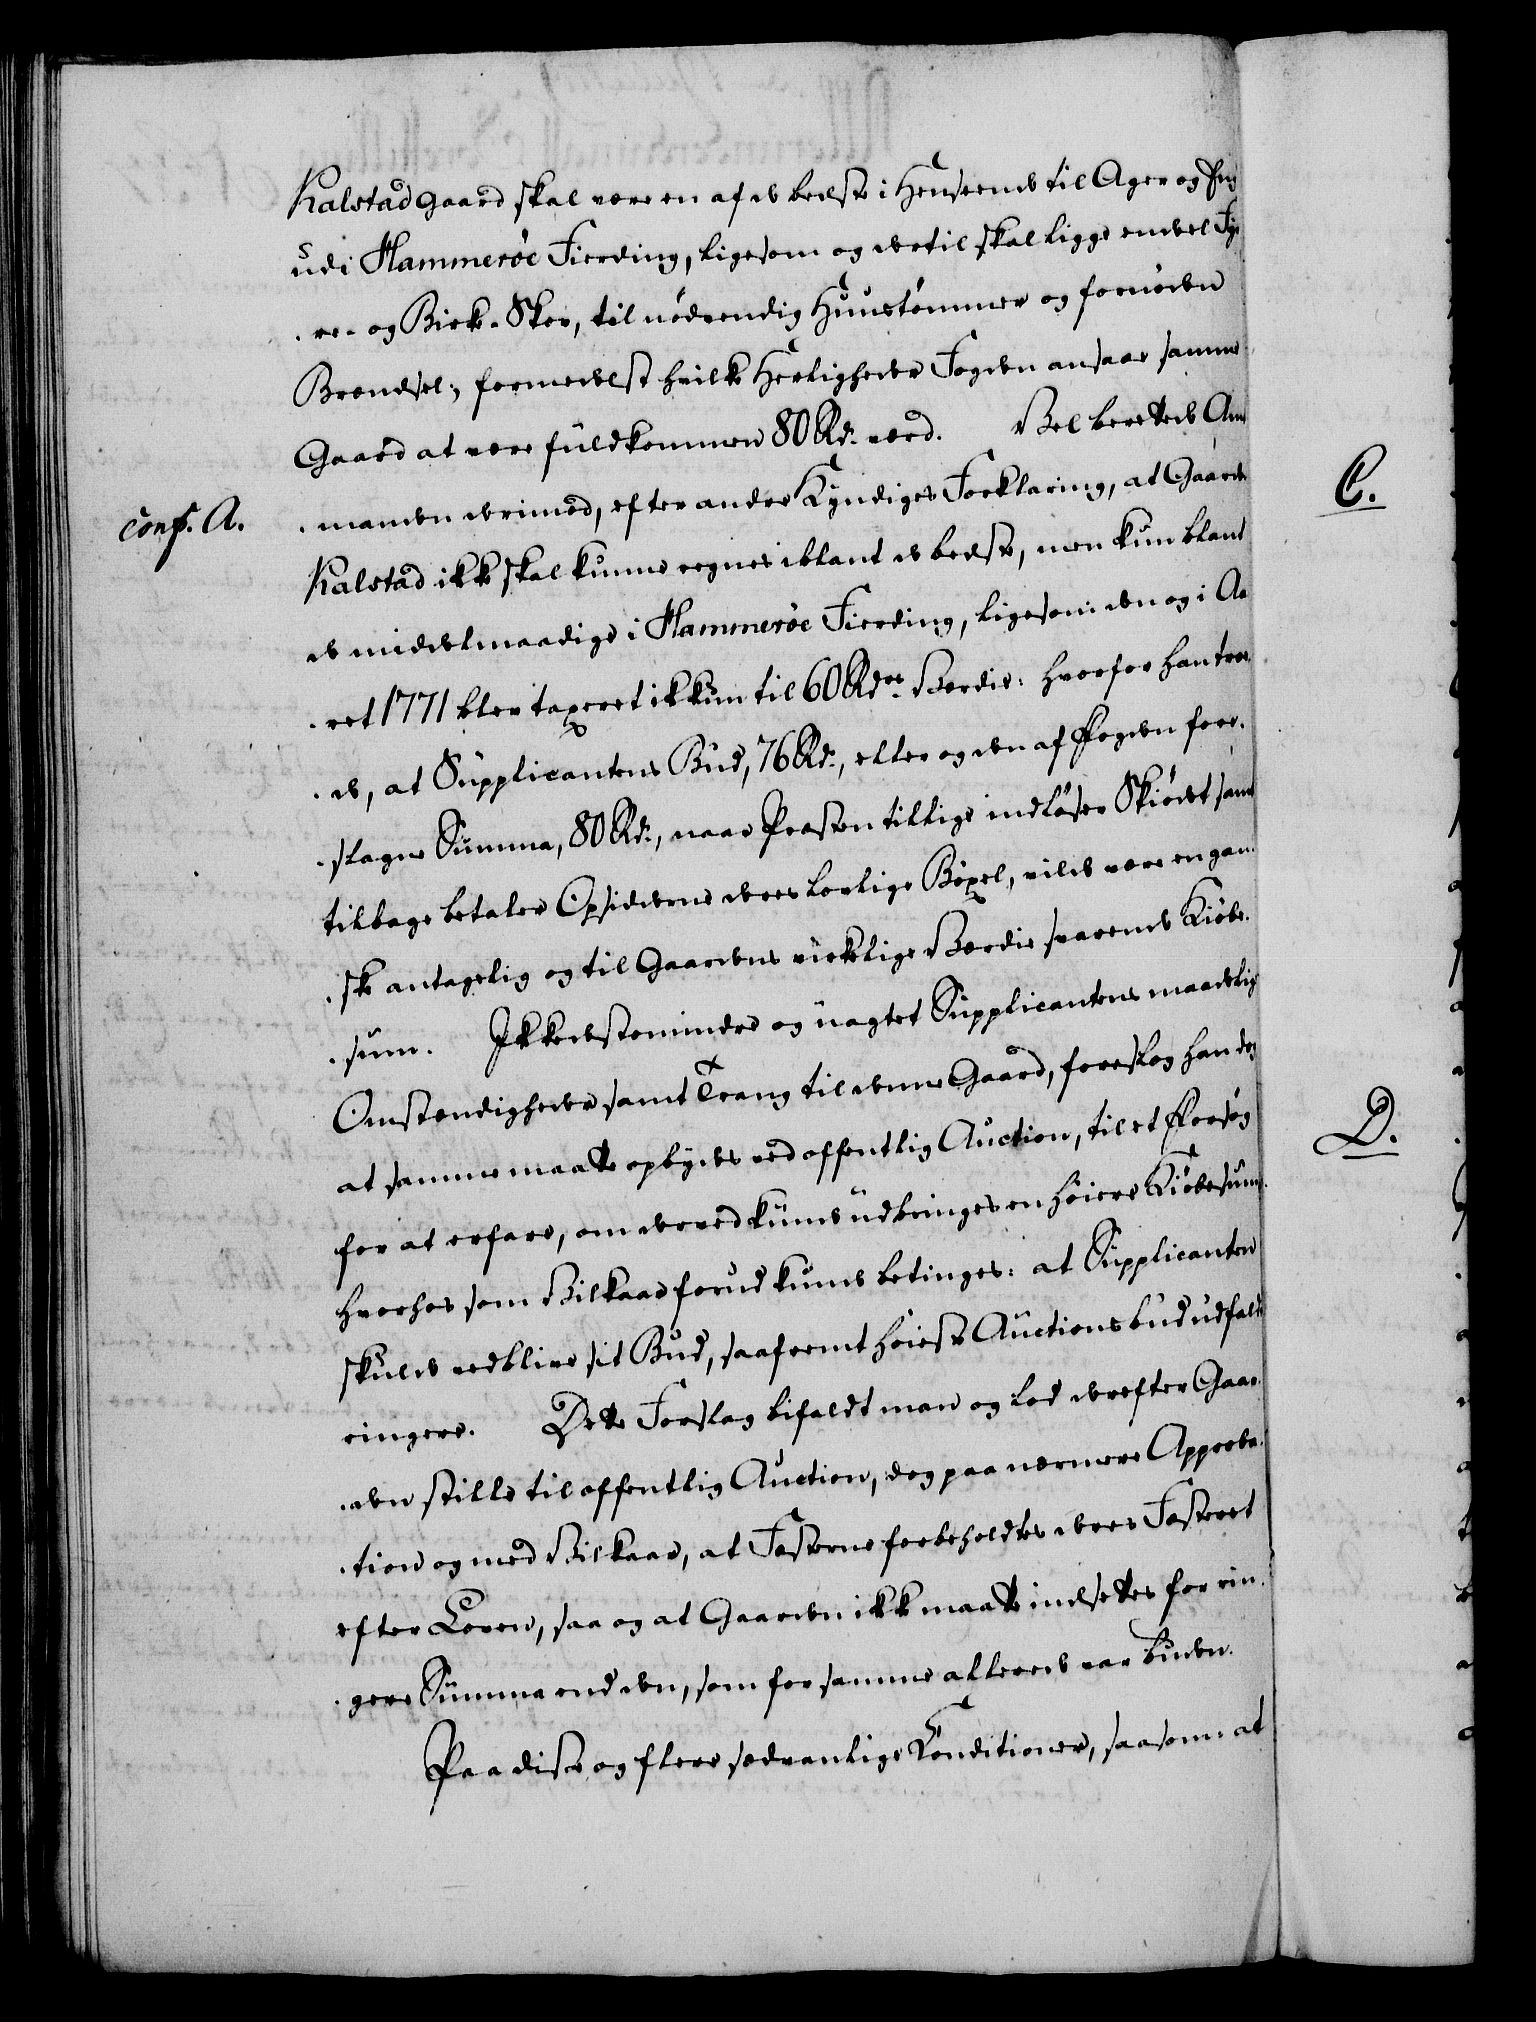 Kalstad Gaard skal være en af de bedste i Henseende til Ager og Eng
udi Hammerøe Fierding, ligesom og dertil skal ligge en deel Fy-
-re- og Birke-Skov, til nødvendig Huustømmer og fornøden
Brændsel; formedelst hvilke Herligheder Fogden ansaae samme
Gaard at være fuldkommen 80 Rd. værd. Vel berettede Amt-
-manden derimod, efter andre Kyndiges Forklaring, at Gaarde
C.
conf. A.
Kalstad ikke skal kunne regnes iblant de bedste, men kun blant
de middelmaadige i Hammerøe Fierding, ligesom den og i Aa-
-ret 1771 blev taxeret ikkun til 60 Rdrs. Værdie: hvorfor han troe-
-de, at Supplicantens Bud, 76 Rd., eller og den af Fogden fore-
-slagne Summa, 80 Rd., naar Præsten tillige indløser Skiødet samt
tilbage betaler Opsidderne deres lovlige Bøxel, vilde være en gan-
-ske antagelig og til Gaardens virkelige Værdie svarende Kiøbe-
-sum. Ikkedestomindre og uagtet Supplicantens maadelige
Omstændigheder samt Trang til denne Gaard, foreslog han dog
at samme maatte opbydes ved offentlig Auction, til et Forsøg
D.
for at erfare, om derved kunde udbringes en høiere Kiøbesum,
hvorhos som Vilkaar forud kunde betinges: at Supplicanten
skulde vedblive sit Bud, saafremt høieste Auctionsbud udfaldt
ringere. Dette Forslag bifaldt man og lod derefter Gaar-
-den stille til offentlig Auction, dog paa nærmere Approba-
-tion og med Vilkaar, at Fæsterne forbeholdtes deres Fæsteret
efter Loven, saa og at Gaarden ikke maatte indsættes for rin-
-gere Summa end den, som for samme allerede var buden.
Paa disse og flere sædvanlige Conditioner, saasom: at